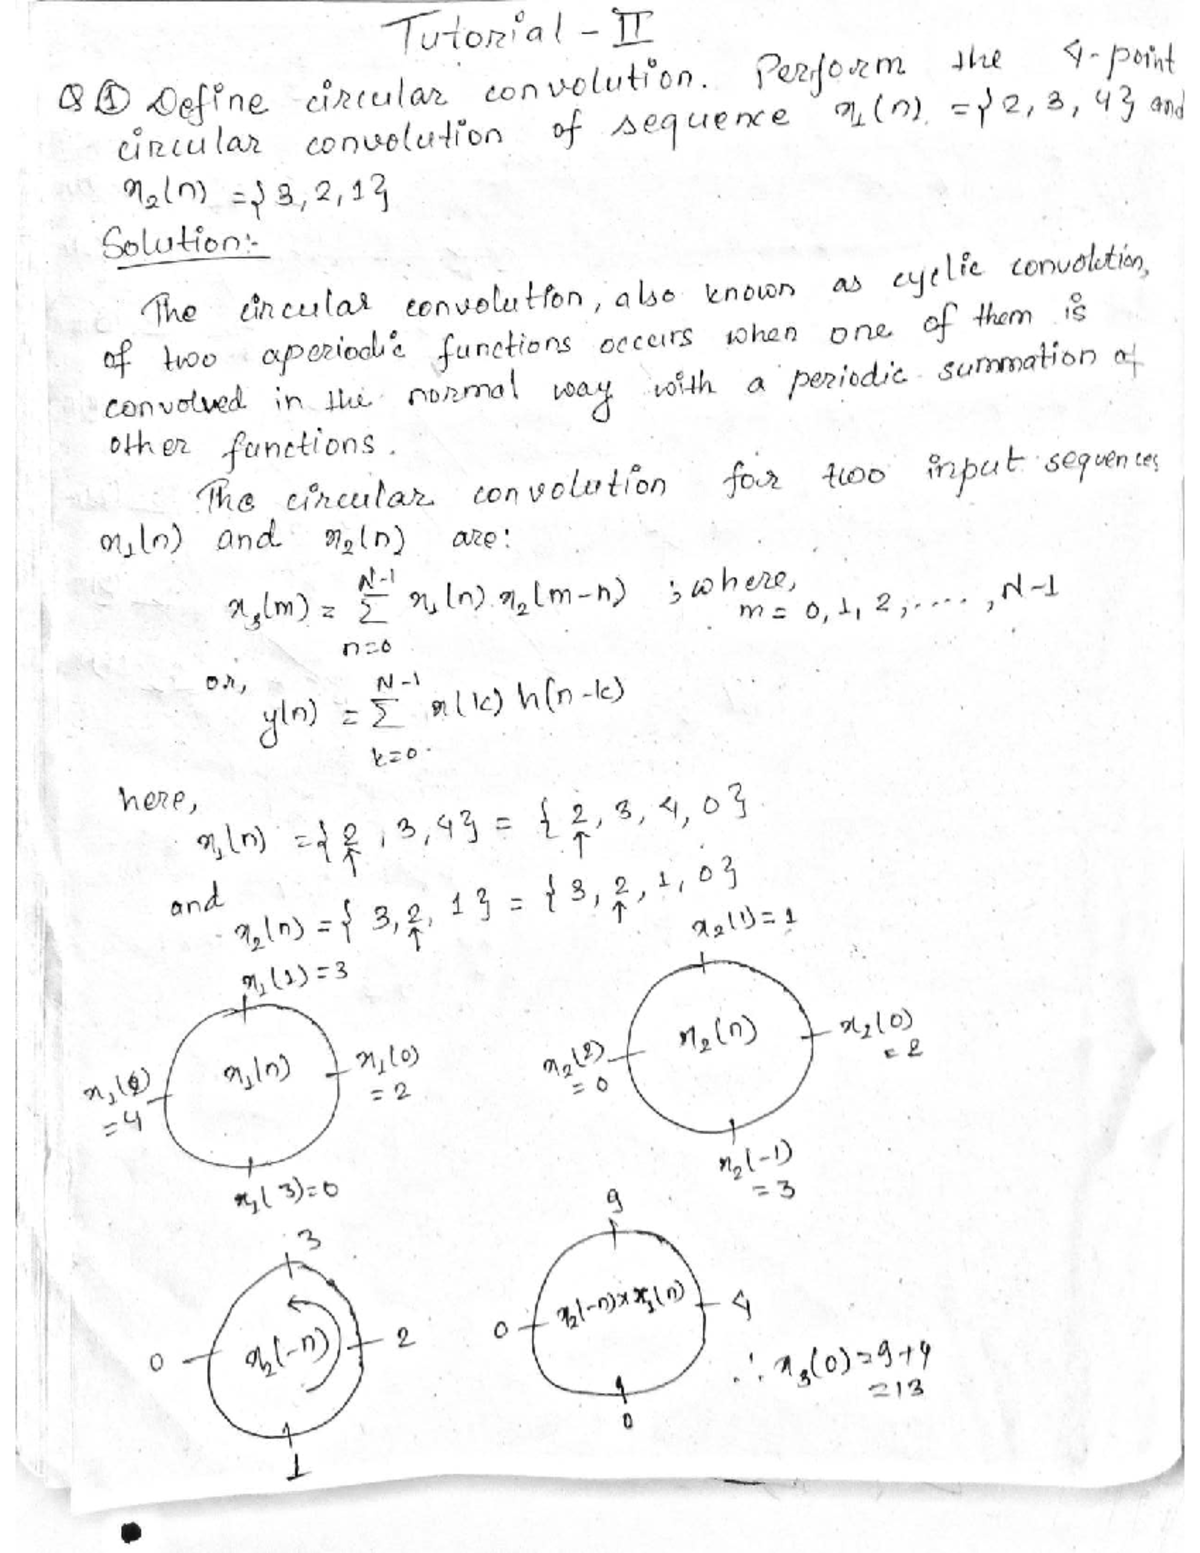 Tutorial - II
Q ① Define circular convolution. Perform the 4-point
circular convolution of sequence x₁(n) = {2, 3, 4} and
x₂(n) = {3, 2, 1}
Solution:-
The circular convolution, also known as cyclic convolution,
of two aperiodic functions occurs when one of them is
convolved in the normal way with a periodic summation of
other functions.
The circular convolution for two input sequences
x₁(n) and x₂(n) are:
x₃(m) = Σ_{n=0}^{N-1} x₁(n).x₂(m-n) ; where,
m = 0, 1, 2, ....., N-1
or,
y(n) = Σ_{k=0}^{N-1} x(k) h(n-k)
here,
x₁(n) = {2↑, 3, 4} = {2↑, 3, 4, 0}
and
x₂(n) = {3, 2↑, 1} = {3, 2↑, 1, 0}
x₁(1) = 3
x₁(n)
x₁(0)
= 2
x₁(2)
= 4
x₁(3) = 0
x₂(1) = 1
x₂(n)
x₂(0)
= 2
x₂(2)
= 0
x₂(-1)
= 3
3
x₂(-n)
0
2
1
9
x₂(-n) x x₁(n)
0
4
0
∴ x₃(0) = 9+4
= 13